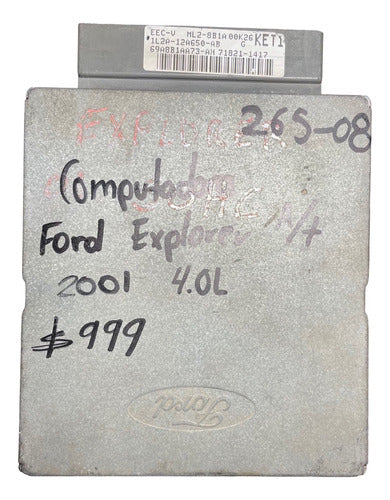 EEC-V ML2-8B1A 00K26
1L2A-12A650-AB G KET1
69A8B1AA73-AH 71821-1417
EXPLORER 265-08
Computadora
OHC
Ford Explorer A/T
2001 4.0L
$999
Ford